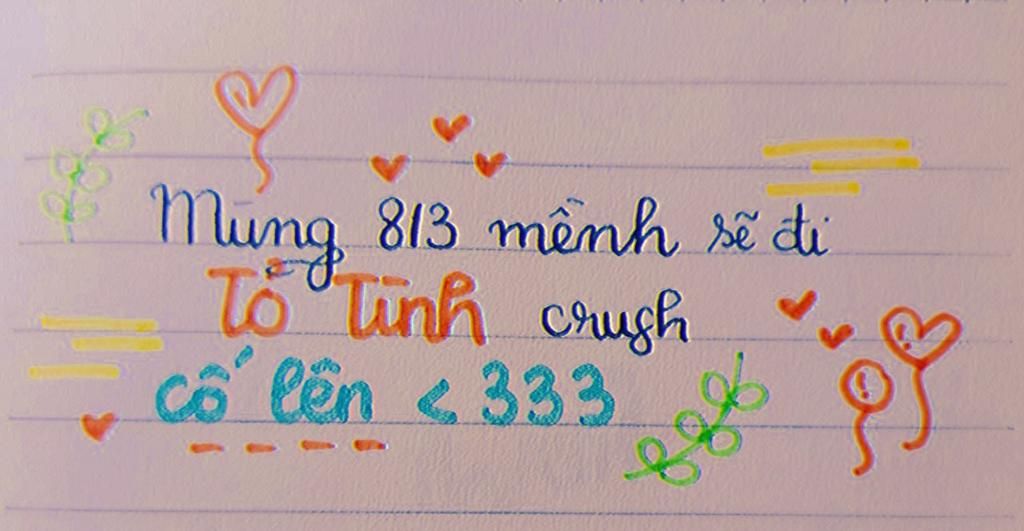 Mùng 8/3 mềnh sẽ đi
Tỏ Tình crush
cố lên <333